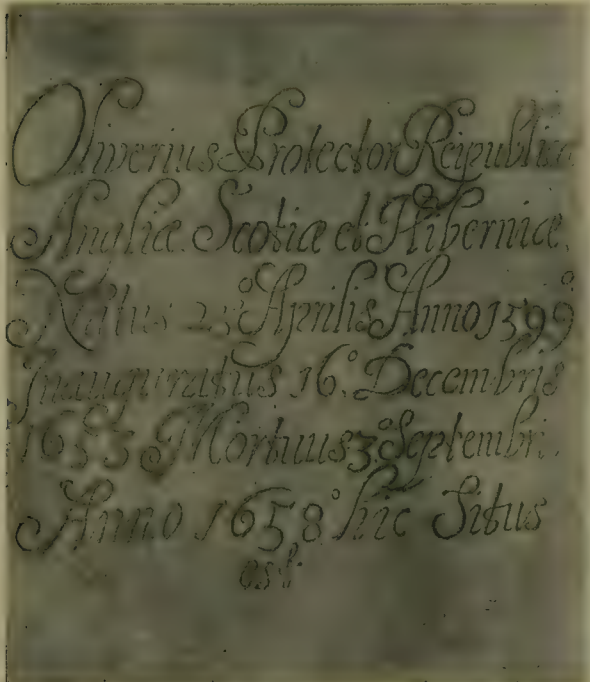 Oliverius Protector Reipublicæ
Angliæ Scotiæ et Hiberniæ.
Natus 25° Aprilis Anno 1599°
Inauguratus 16.° Decembris
1653 Mortuus 3° Septembri.
Anno 1658° hic Situs
est.